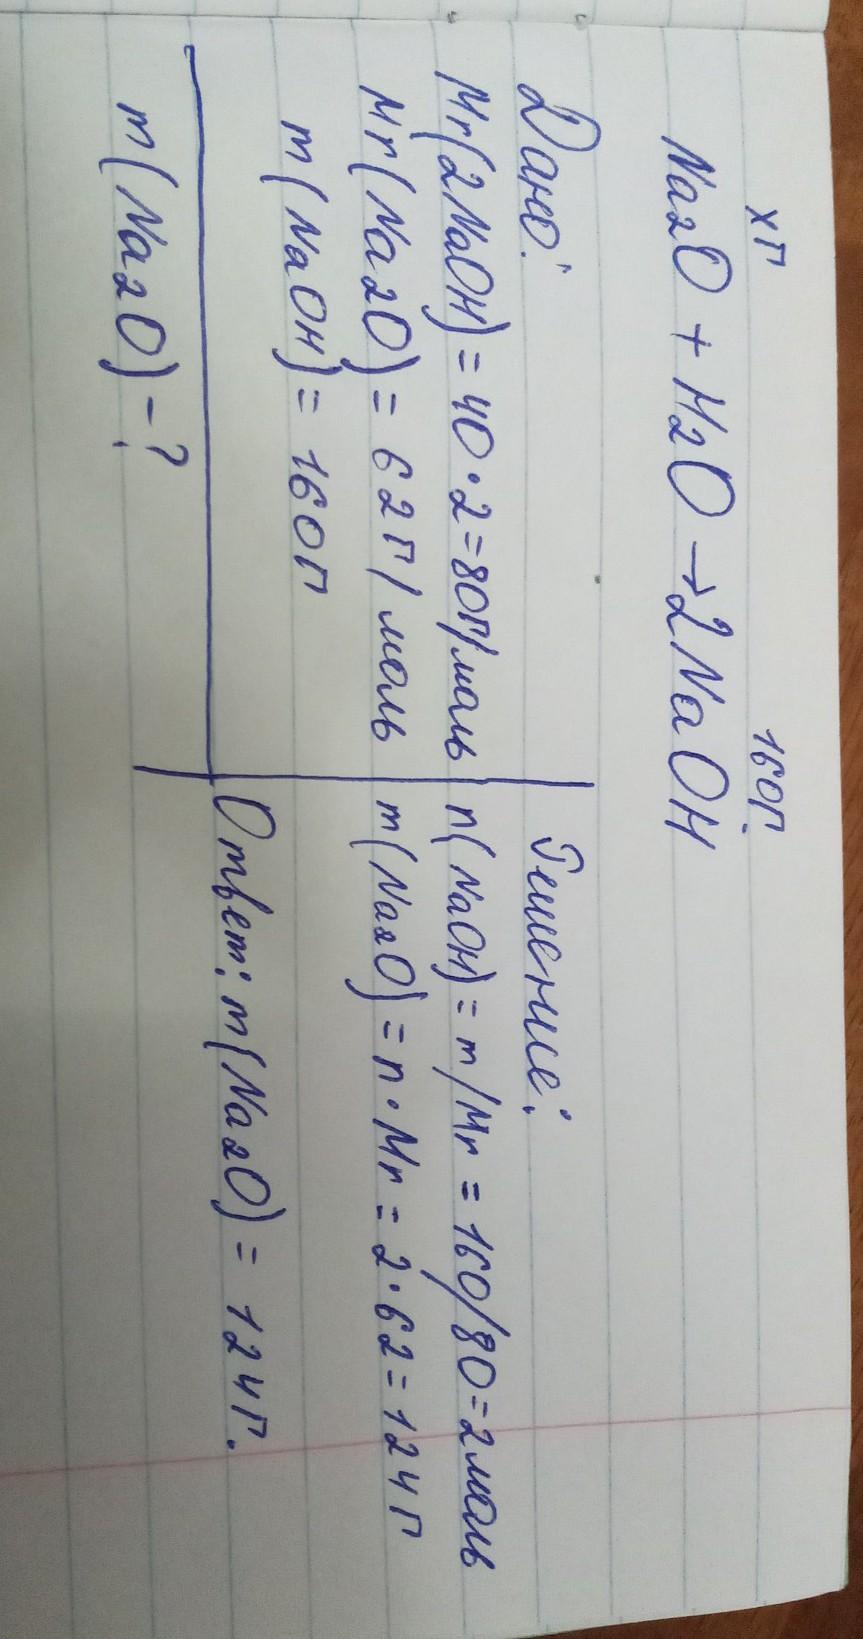 хг 160г.
Na2O + H2O → 2NaOH
Дано:
Mr(2NaOH) = 40·2=80г/моль
Mr(Na2O) = 62г/моль
m(NaOH) = 160г
m(Na2O) - ?
Решение:
n(NaOH) = m/Mr = 160/80=2моль
m(Na2O) = n·Mr = 2·62=124г
Ответ: m(Na2O) = 124г.